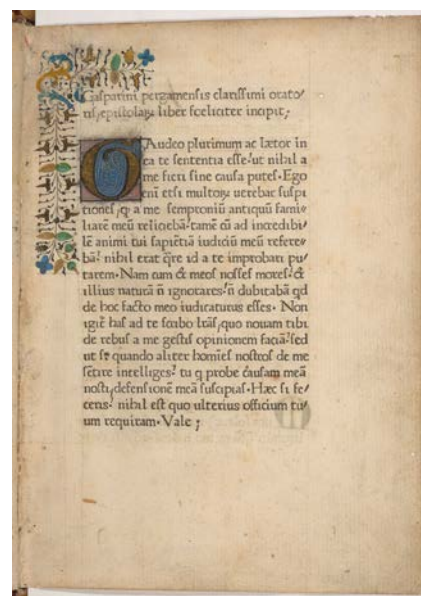 Gasparini pergamensis clarissimi orato/
ris, epistolaꝝ liber foeliciter incipit;
GAudeo plurimum ac lætor in
ea te sententia esse, ut nihil a
me fieri sine causa putes. Ego
enī etsi multoꝝ uerebar suspi
tiones, ꝙ a me semproniū antiquū fami⸗
liarē meū reiiciebā, tamē cū ad incredibi/
lē animi tui sapiētiā iudiciū meū refere⸗
bā, nihil erat q̄re id a te improbari pu⸗
tarem. Nam cum & meos nosses mores, &
illius naturā nō ignorares, nō dubitabā qd
de hoc facto meo iudicaturus esses. Non
igit̄ has ad te scribo lr̄as, quo nouam tibi
de rebus a me gestis opinionem faciā, sed
ut si quando aliter homīes nostros de me
sētire intelliges, tu q probe causam meā
nosti, defensionē meā suscipias. Hæc si fe/
ceris, nihil est quo ulterius officium tu/
um requiram. Vale ;